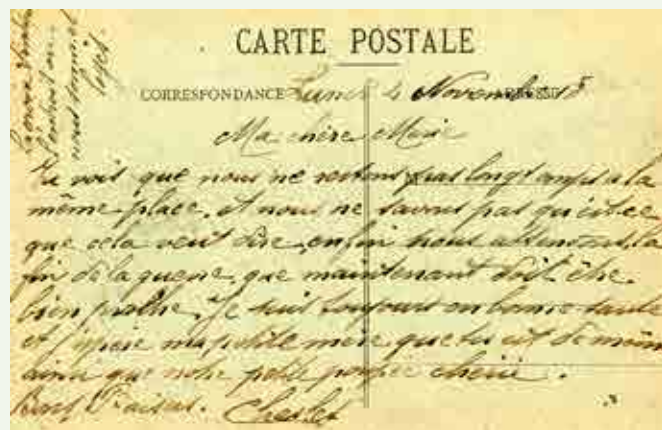 CARTE POSTALE
CORRESPONDANCE Lundi 4 Novembre 18
Ma chère Marie
Tu vois que nous ne restons pas longtemps a la
même place, et nous ne savons pas qu'est ce
que cela veut dire, enfin nous attendons la
fin de la guerre, que maintenant doit être
bien proche. Je suis toujours en bonne santé
et j'espère ma petite mère que tu est de même
ainsi que notre petite poupée chérie.
Bons Baisers. Charles
l'endroit ou
nous sommes